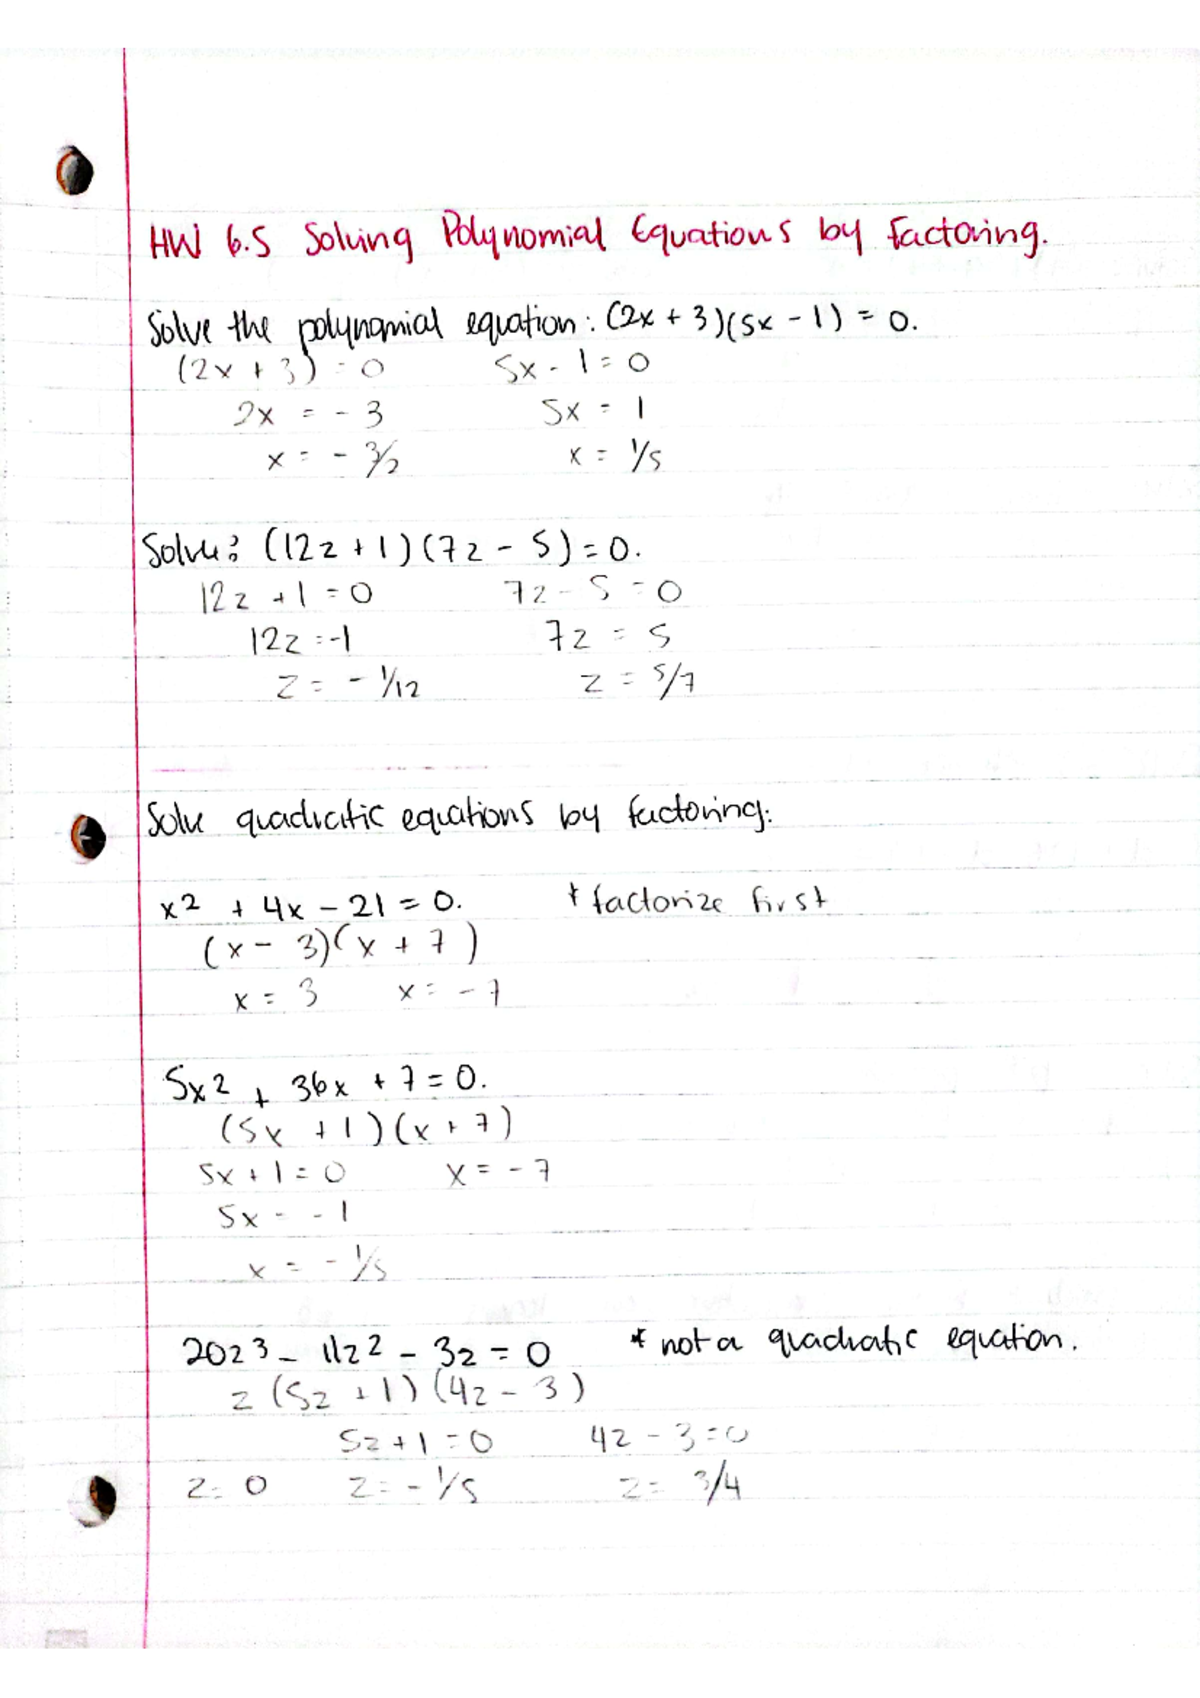 HW 6.5 Solving Polynomial Equations by factoring.
Solve the polynomial equation: (2x + 3)(5x - 1) = 0.
(2x + 3) = 0 5x - 1 = 0
2x = - 3 5x = 1
x = - 3/2 x = 1/5
Solve: (12z + 1)(7z - 5) = 0.
12z + 1 = 0 7z - 5 = 0
12z = -1 7z = 5
z = - 1/12 z = 5/7
Solve quadratic equations by factoring:
x2 + 4x - 21 = 0. * factorize first
(x - 3)(x + 7)
x = 3 x = - 7
5x2 + 36x + 7 = 0.
(5x + 1)(x + 7)
5x + 1 = 0 x = - 7
5x = - 1
x = - 1/5
20z3 - 11z2 - 3z = 0 * not a quadratic equation.
z (5z + 1)(4z - 3)
5z + 1 = 0 4z - 3 = 0
z = 0 z = - 1/5 z = 3/4